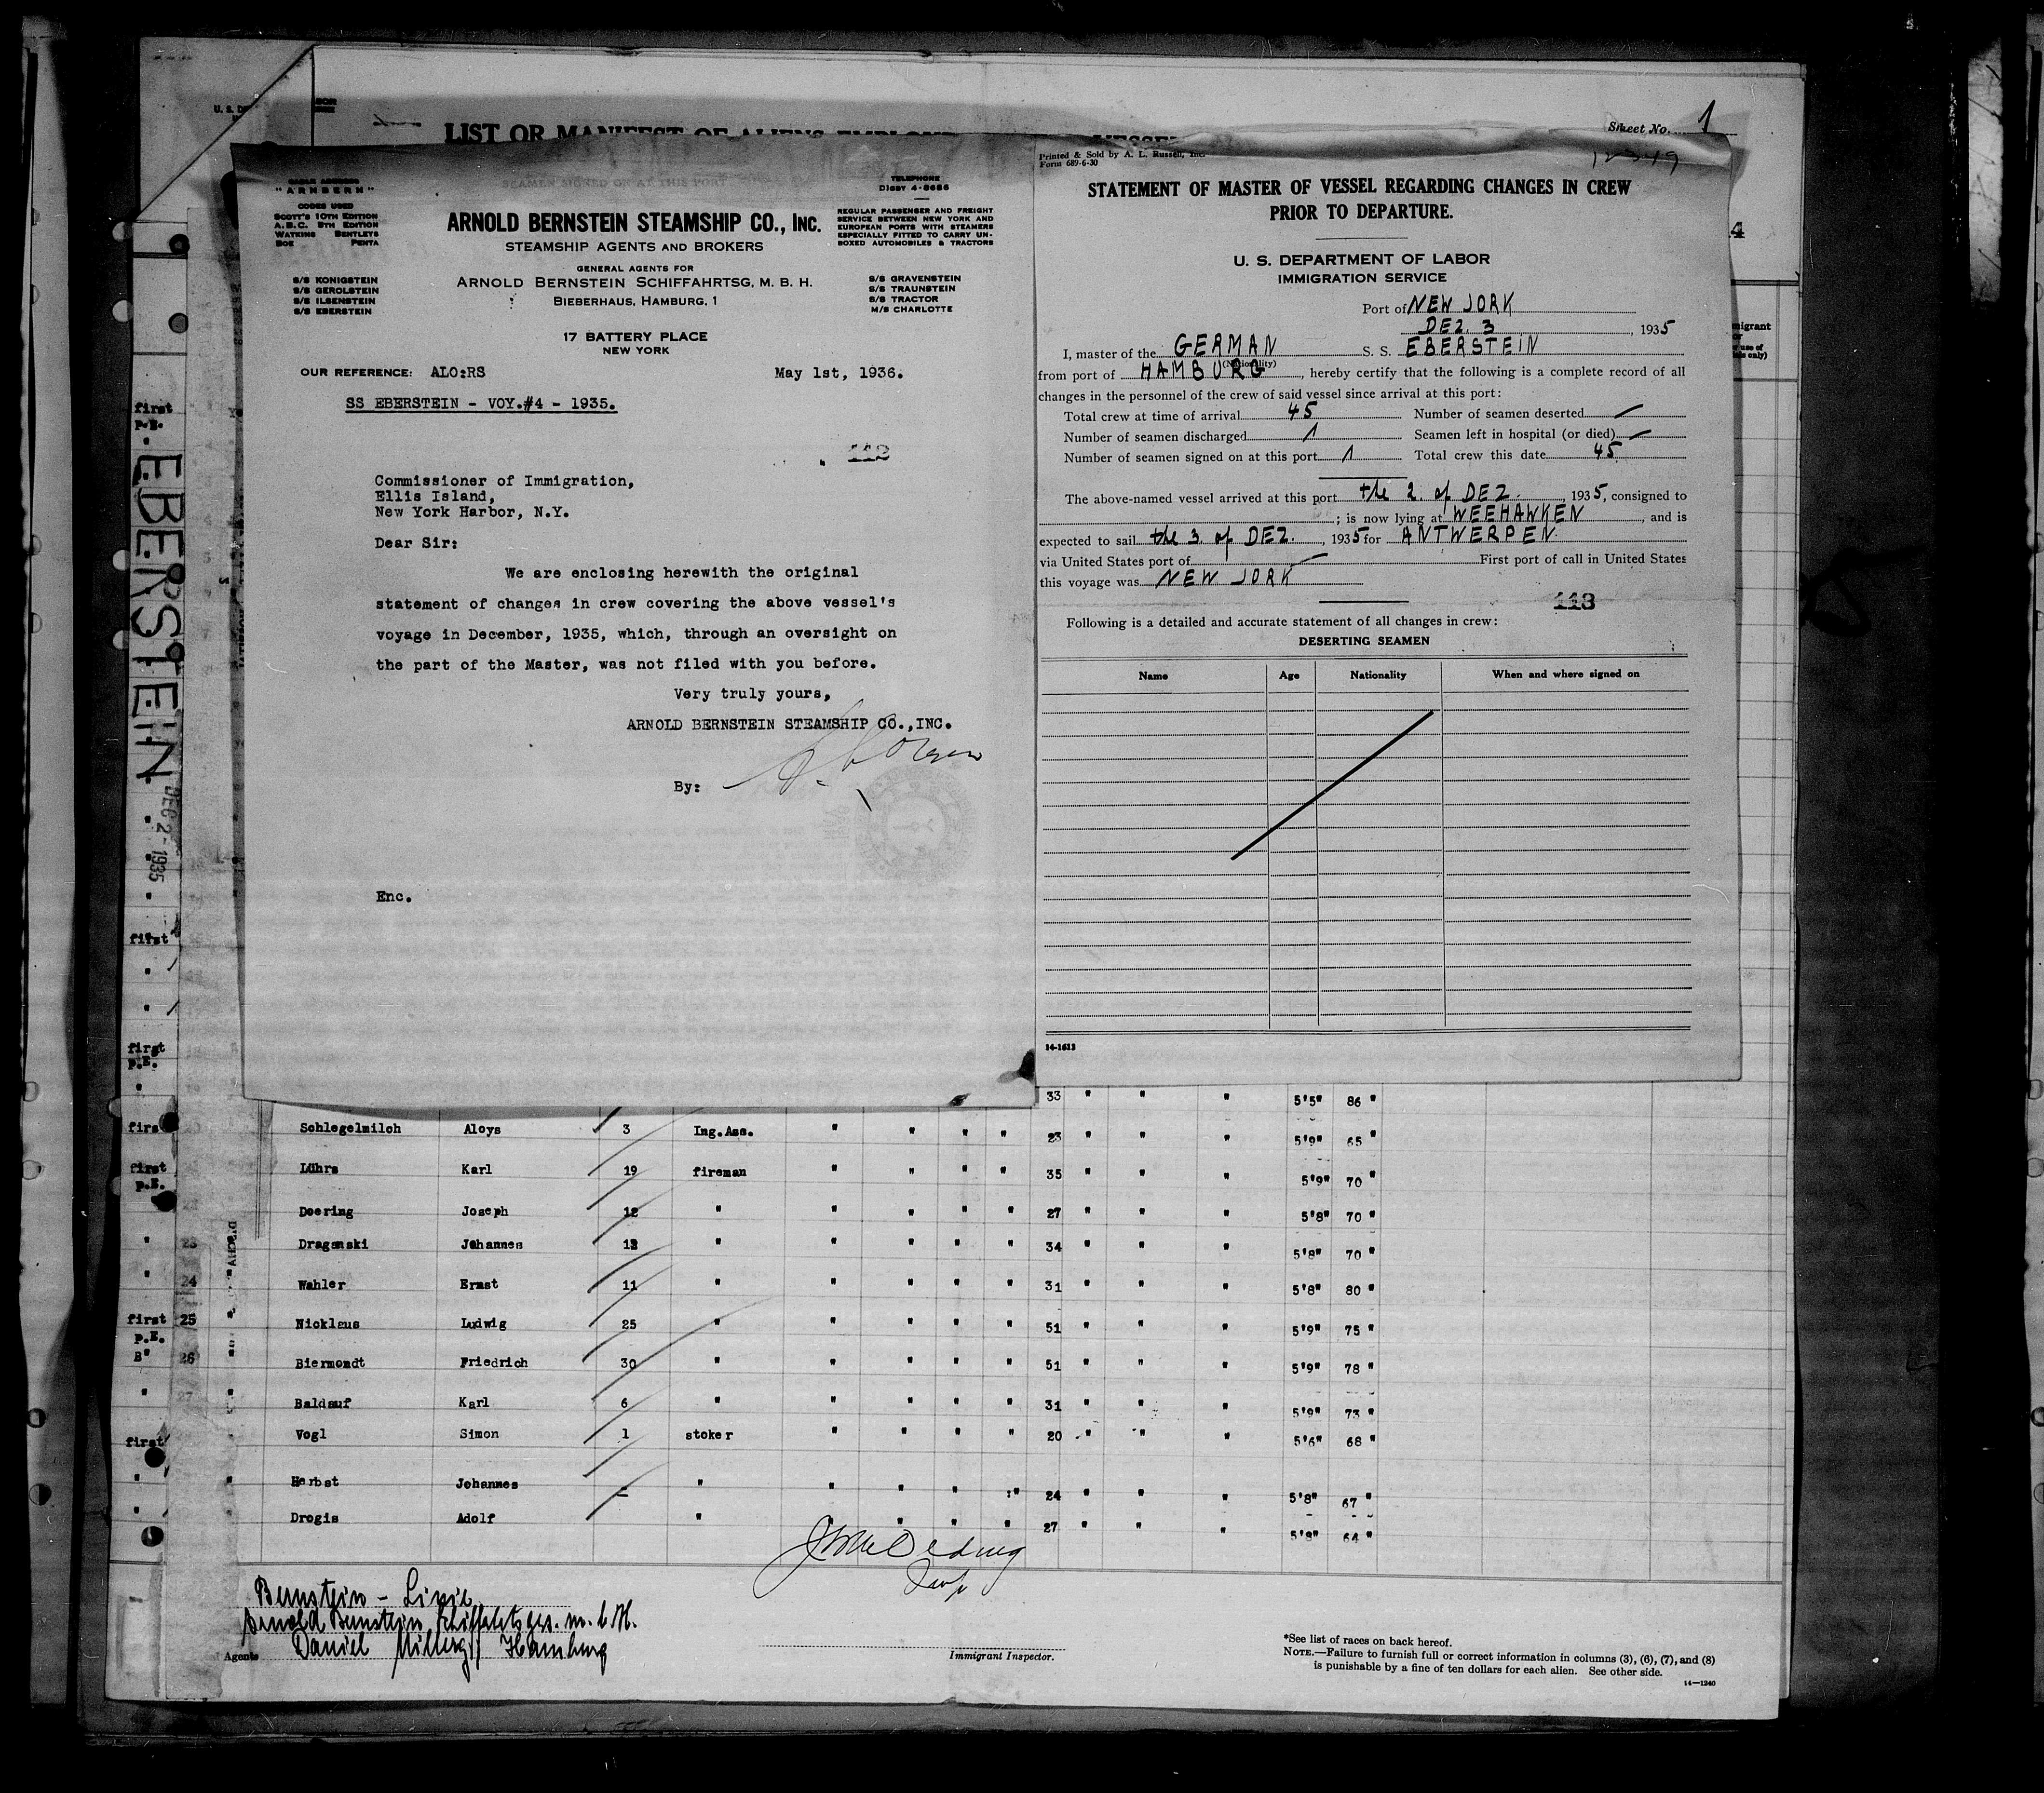 U. S. DE
LIST OR MANIFEST OF ALIENS EMPLOY
VESSEL
Sheet No. 1
CABLE ADDRESS
"ARNBERN"
CODES USED
SCOTT'S 10TH EDITION
A.B.C. 5TH EDITION
WATKINS BENTLEYS
BOE PENTA
TELEPHONE
DIGBY 4-8686
REGULAR PASSENGER AND FREIGHT
SERVICE BETWEEN NEW YORK AND
EUROPEAN PORTS WITH STEAMERS
ESPECIALLY FITTED TO CARRY UN-
BOXED AUTOMOBILES & TRACTORS
ARNOLD BERNSTEIN STEAMSHIP CO., INC.
STEAMSHIP AGENTS AND BROKERS
GENERAL AGENTS FOR
ARNOLD BERNSTEIN SCHIFFAHRTSG, M. B. H.
BIEBERHAUS, HAMBURG, 1
S/S KONIGSTEIN
S/S GEROLSTEIN
S/S ILSENSTEIN
S/S EBERSTEIN
S/S GRAVENSTEIN
S/S TRAUNSTEIN
S/S TRACTOR
M/S CHARLOTTE
17 BATTERY PLACE
NEW YORK
OUR REFERENCE: ALO:RS May 1st, 1936.
SS EBERSTEIN - VOY.#4 - 1935.
112
Commissioner of Immigration,
Ellis Island,
New York Harbor, N.Y.
Dear Sir:
We are enclosing herewith the original
statement of changes in crew covering the above vessel's
voyage in December, 1935, which, through an oversight on
the part of the Master, was not filed with you before.
Very truly yours,
ARNOLD BERNSTEIN STEAMSHIP CO.,INC.
By:
Enc.
Printed & Sold by A. L. Russell, Inc.
Form 689-6-30
STATEMENT OF MASTER OF VESSEL REGARDING CHANGES IN CREW
PRIOR TO DEPARTURE.
U. S. DEPARTMENT OF LABOR
IMMIGRATION SERVICE
Port of NEW JORK
DEZ. 3, 1935
I, master of the GERMAN S. S. EBERSTEIN
(Nationality)
from port of HAMBURG, hereby certify that the following is a complete record of all
changes in the personnel of the crew of said vessel since arrival at this port:
Total crew at time of arrival 45 Number of seamen deserted —
Number of seamen discharged 1 Seamen left in hospital (or died) —
Number of seamen signed on at this port 1 Total crew this date 45
The above-named vessel arrived at this port the 2. of DEZ., 1935, consigned to
; is now lying at WEEHAWKEN, and is
expected to sail the 3. of DEZ., 1935 for ANTWERPEN
via United States port of — First port of call in United States
this voyage was NEW JORK
113
Following is a detailed and accurate statement of all changes in crew:
DESERTING SEAMEN
Name Age Nationality When and where signed on
14-1613
EBERSTEIN
DEC 2- 1935
33 " " " 5'5" 86 "
Schlegelmilch Aloys 3 Ing.Ass. " " " " 23 " " " 5'9" 65 "
Lührs Karl 19 fireman " " " " 35 " " " 5'9" 70 "
Doering Joseph 12 " " " " " 27 " " " 5'8" 70 "
Draganski Johannes 12 " " " " " 34 " " " 5'8" 70 "
24 Wahler Ernst 11 " " " " " 31 " " " 5'8" 80 "
first 25 Nicklaus Ludwig 25 " " " " " 51 " " " 5'9" 75 "
26 Biermondt Friedrich 30 " " " " " 51 " " " 5'9" 78 "
Baldauf Karl 6 " " " " " 31 " " " 5'9" 73 "
Vogl Simon 1 stoker " " " " 20 " " " 5'6" 68 "
Herbst Johannes - " " " " " 24 " " " 5'8" 67 "
Drogis Adolf " " " " 27 " " " 5'8" 64 "
Bernstein - Linie
Arnold Bernstein Schiffahrtsges. m. b. H.
Agents Daniel Hamburg
Immigrant Inspector.
*See list of races on back hereof.
NOTE.—Failure to furnish full or correct information in columns (3), (6), (7), and (8)
is punishable by a fine of ten dollars for each alien. See other side.
14—1240